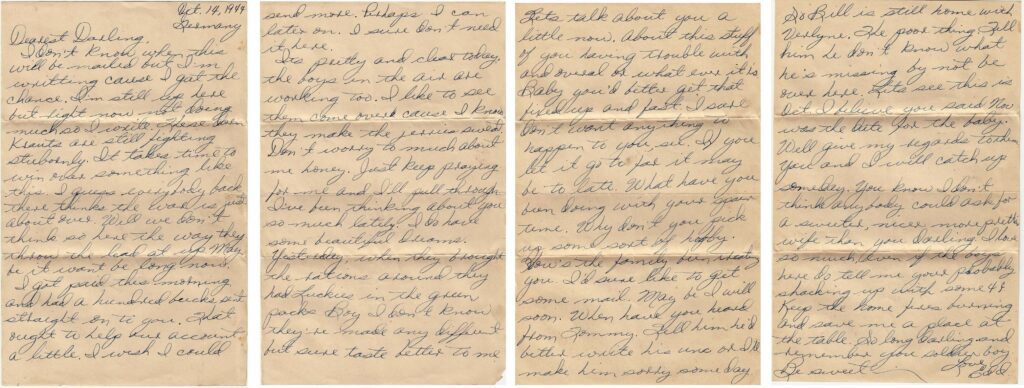 Oct. 14, 1944
Germany
Dearest Darling.
I don't know when this
will be mailed but I'm
writting cause I got the
chance. I'm still up here
but right now not doing
much so I write. These darn
Krauts are still fighting
stubornly. It takes time to
win over something like
this. I guess everybody back
there thinks the war is just
about over. Well we don't
think so here the way they
throw the lead at us. May
be it want be long now.
I got paid this morning
and had a hundred bucks sent
straight on to you. That
ought to help our account
a little. I wish I could
send more. Perhaps I can
later on. I sure don't need
it here.
Its pretty and clear today,
the boys in the air are
working too. I like to see
them come over cause I know
they make the jerries sweat.
Don't worry to much about
me honey. Just keep praying
for me and I'll pull through
I've been thinking about you
so much lately. I do have
some beautiful dreams.
Yesterday when they brought
the rations around they
had Luckies in the green
packs Boy I don't know
they're made any different
but sure taste better to me
Lets talk about you a
little now. About this stuff
of you having trouble with
and overal or what ever it is
Baby you'd better get that
fixed up and fast. I sure
don't want anything to
happen to you, see. If you
let it go to far it may
be to late. What have you
been doing with your spare
time. Why don't you pick
up some sort by hobby.
How's the family been treating
you. I'd sure like to get
some mail. May be I will
soon. When have you heard
from Tommy. Tell him he'd
better write his unc or I'll
make him sorry some day
So Bill is still home with
Verlyne. The poor thing. Tell
him he don't know what
he's missing by not be
over here. Lets see this is
Oct. I believe you said Nov
was the date for the baby.
Well give my regards to them
You and I will catch up
someday. You know I don't
think anybody could ask for
a sweeter, nicer, more pretty
wife then you darling. I love
so much, even if the boys
here do tell me your probably
shacking up with some 4F
Keep the home fires burning
and save me a place at
the table. So long Darling and
remember you soldier boy
Love
Be sweet